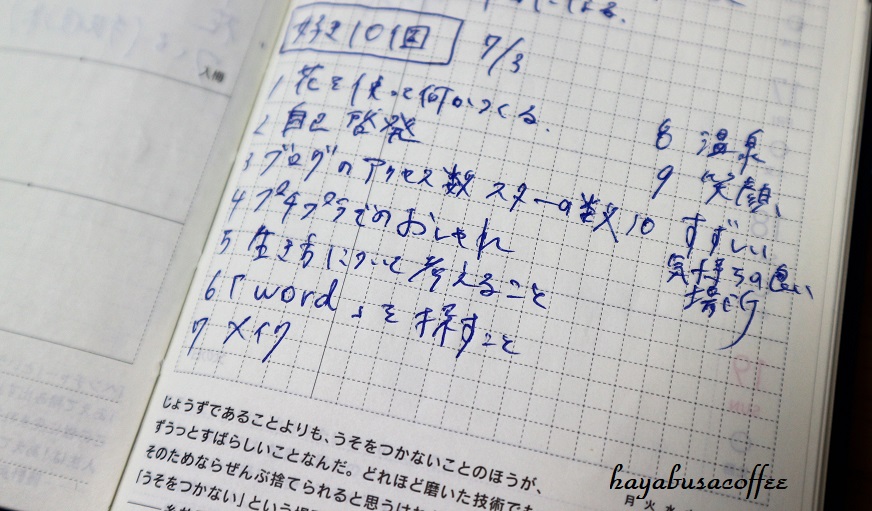 好き10個
7/3
1 花を使って何かつくる.
2 自己啓発
3 ブログのアクセス数 スターの数
4 プチプラでのおしゃれ
5 生き方について考えること
6 「word」を探すこと
7 メイク
8 温泉
9 笑顔
10 すずしい
気持ちの良い
場所
入梅
じょうずであることよりも、うそをつかないことのほうが、
ずうっとすばらしいことなんだ。どれほど磨いた技術でも
そのためならぜんぶ捨てられると思うけ
「うそをつかない」という
月 火 水
hayabusacoffee
17
18
19
SUN